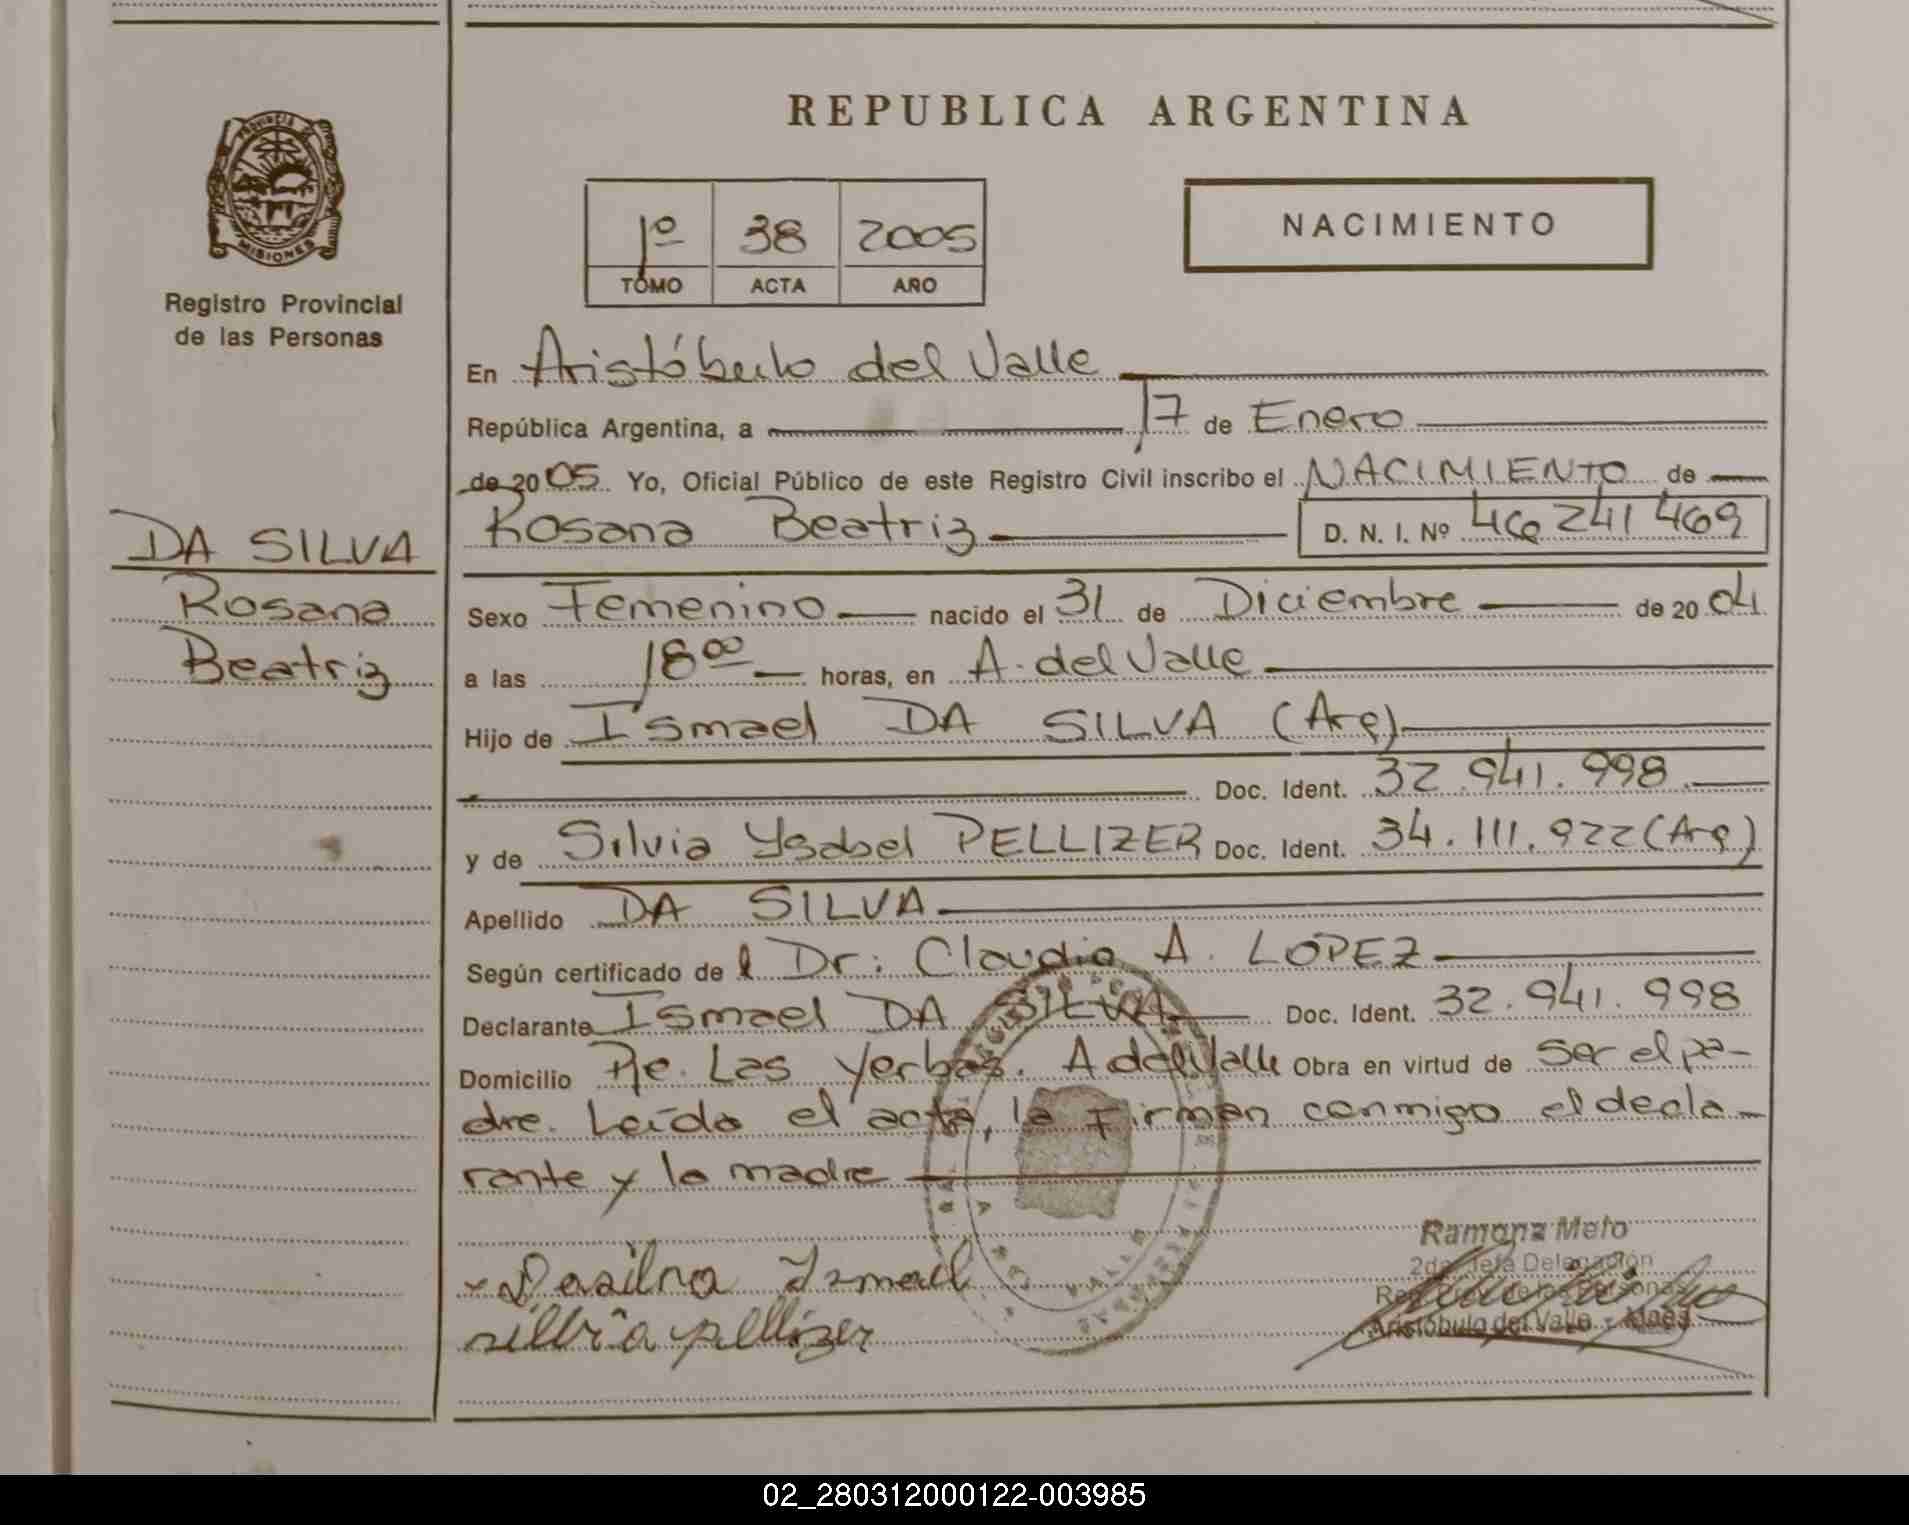 REPUBLICA ARGENTINA
Provincia de
MISIONES
Registro Provincial
de las Personas
1º 38 2005
TOMO ACTA AÑO
NACIMIENTO
En Aristóbulo del Valle
República Argentina, a 17 de Enero
de 2005 Yo, Oficial Público de este Registro Civil inscribo el NACIMIENTO de
Rosana Beatriz D. N. I. Nº 46 241 469
DA SILVA
Rosana
Beatriz
Sexo Femenino nacido el 31 de Diciembre de 2004
a las 18 00 horas, en A. del Valle
Hijo de Ismael DA SILVA (Arg)
Doc. Ident. 32.941.998
y de Silvia Ysabel PELLIZER Doc. Ident. 34.111.922 (Arg)
Apellido DA SILVA
Según certificado del Dr: Claudio A. LOPEZ
Declarante Ismael DA SILVA Doc. Ident. 32.941.998
Domicilio Pje. Las Yerbas. A del Valle Obra en virtud de ser el pa-
dre. Leída el acta, la firman conmigo el decla-
rante y la madre
Dasilva Ismael
silbia pellizer
Ramona Melo
2da. Jefa Delegación
Reg. Prov. de las Personas
Aristóbulo del Valle - Mnes.
02_280312000122-003985